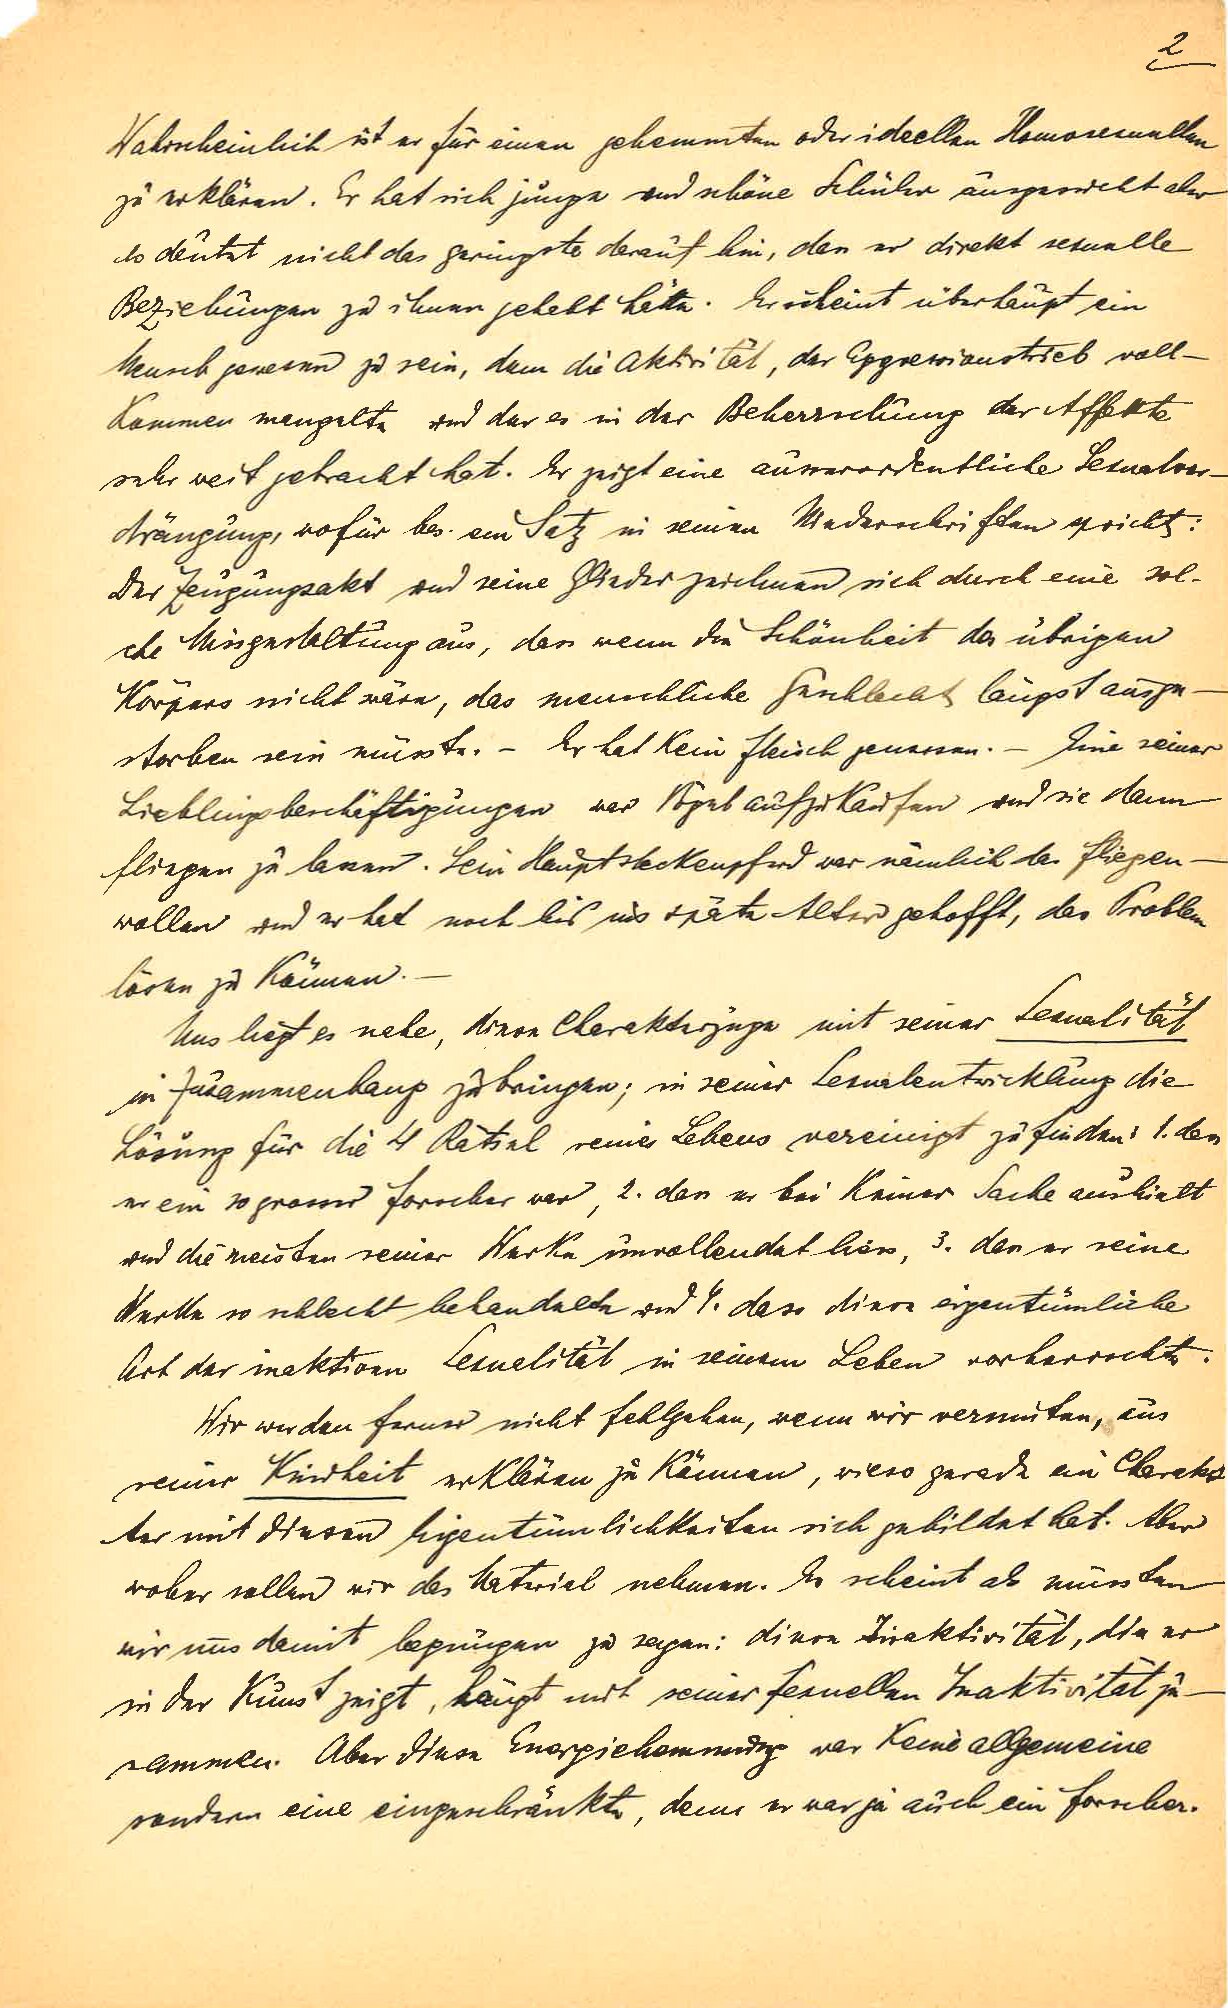 2
Wahrscheinlich ist er für einen gehemmten oder ideellen Homosexuellen
zu erklären. Er hat sich junge und schöne Schüler ausgesucht aber
es deutet nicht das geringste darauf hin, dass er direkt sexuelle
Beziehungen zu ihnen gehabt hätte. Er scheint überhaupt ein
Mensch gewesen zu sein, dem die Aktivität, der Aggressionstrieb voll-
kommen mangelte und der es in der Beherrschung der Affekte
sehr weit gebracht hat. Er zeigt eine ausserordentliche Sexualver-
drängung, wofür bes. ein Satz in seinen Niederschriften spricht:
Der Zeugungsakt und seine Glieder zeichnen sich durch eine sol-
che Missgestaltung aus, dass wenn die Schönheit des übrigen
Körpers nicht wäre, das menschliche Geschlecht längst ausge-
storben sein müsste. – Er hat kein Fleisch genossen. – Eine seiner
Lieblingsbeschäftigungen war Vögel aufzukaufen und sie dann
fliegen zu lassen. Sein Hauptsteckenpferd war nämlich das Fliegen-
wollen und er hat noch bis ins späte Alter gehofft, das Problem
lösen zu können. –
Uns liegt es nahe, diese Charakterzüge mit seiner Sexualität
in Zusammenhang zu bringen; in seiner Sexualentwicklung die
Lösung für die 4 Rätsel seines Lebens vereinigt zu finden: 1. dass
er ein so grosser Forscher war, 2. dass er bei keiner Sache aushielt
und die meisten seiner Werke unvollendet liess, 3. dass er seine
Werke so schlecht behandelte und 4. dass diese eigentümliche
Art der inaktiven Sexualität in seinem Leben vorherrschte.
Wir werden ferner nicht fehlgehen, wenn wir vermuten, aus
seiner Kindheit erklären zu können, wieso gerade ein Charak-
ter mit diesen Eigentümlichkeiten sich gebildet hat. Aber
woher sollen wir das Material nehmen. Es scheint als müssten
wir uns damit begnügen zu sagen: diese Inaktivität, die er
in der Kunst zeigt, hängt mit seiner sexuellen Inaktivität zu-
sammen. Aber diese Energiehemmung war keine allgemeine
sondern eine eingeschränkte, denn er war ja auch ein Forscher.